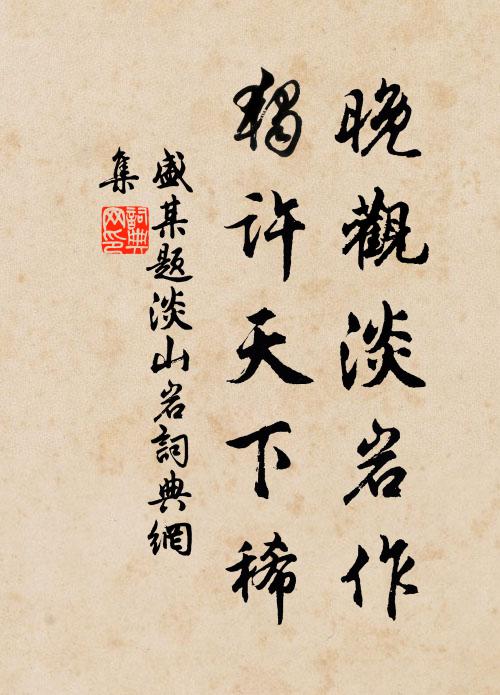 晚觀淡岩作
獨許天下稀
盛某题淡山岩詞典網
集
詞典
网印